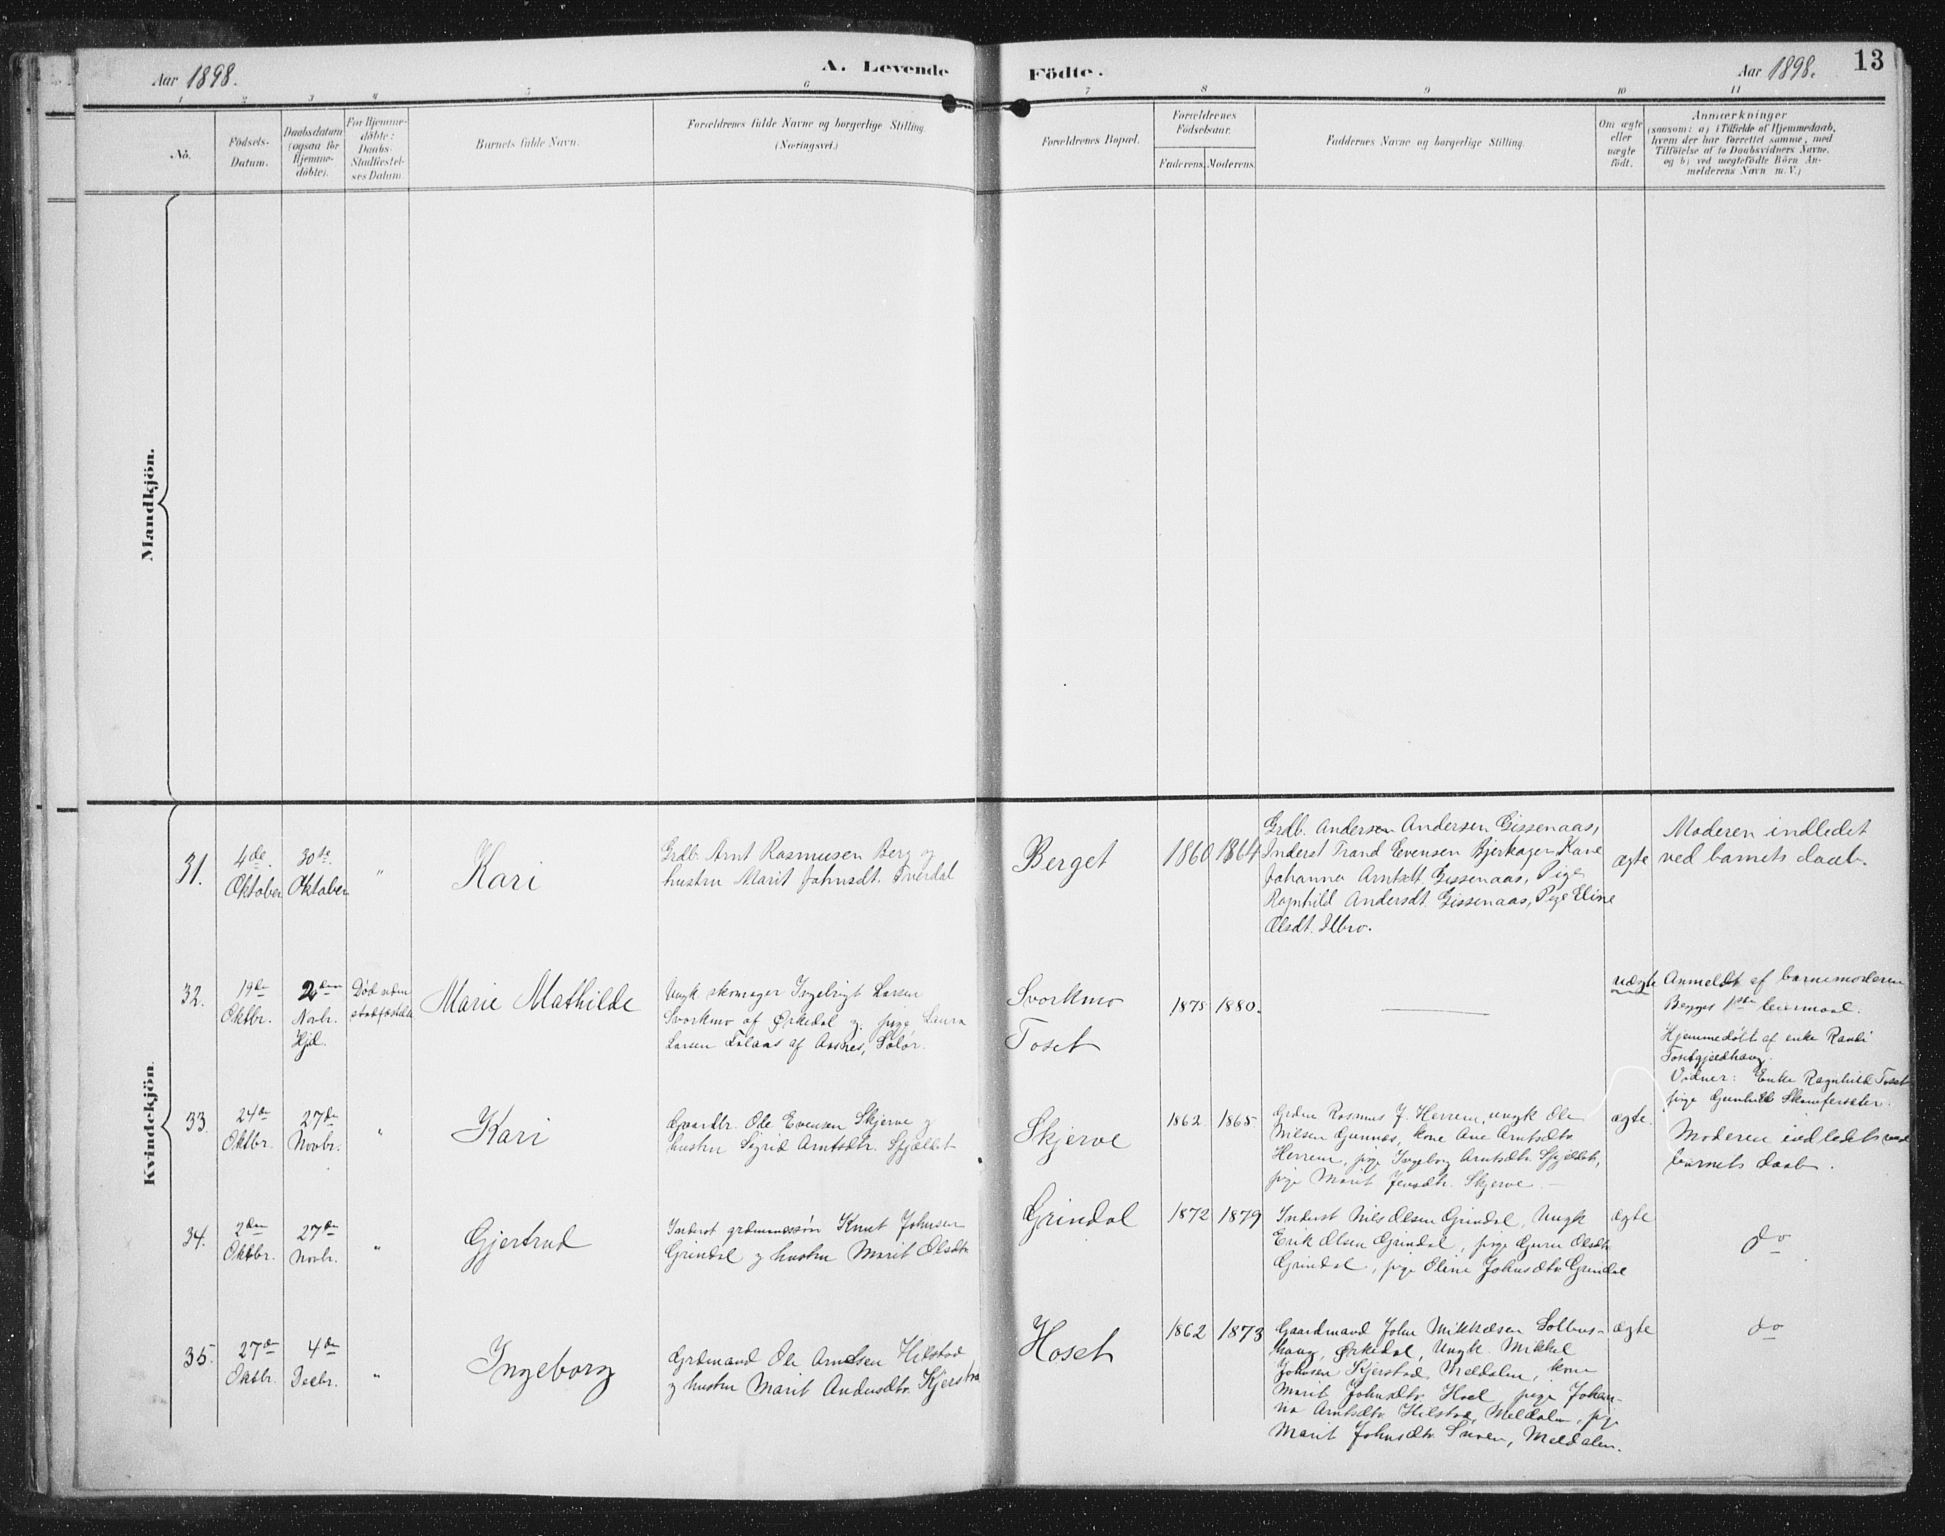 Aar 1898.
A. Levende Födte.
Aar 1898.
13
1 2 3 4 5 6 7 8 9 10 11
No.
Födsels-
Datum.
Daabsdatum
(ogsaa for
Hjemme-
döbte).
For Hjemme-
döbte:
Daabs-
Stadfæstel-
ses Datum.
Barnets fulde Navn.
Forældrenes fulde Navne og borgerlige Stilling.
(Næringsvei.)
Forældrenes Bopæl.
Forældrenes
Födselsaar.
Faderens. Moderens.
Faddernes Navne og borgerlige Stilling.
Om ægte
eller
uægte
födt.
Anmærkninger
(saasom: a) i Tilfælde af Hjemmedaab,
hvem der har forrettet samme, med
Tilföielse af to Daabsvidners Navne,
og b) ved uegtefödte Börn An-
melderens Navn m. V.)
Mandkjön.
Kvindekjön.
31.
4de
Oktober
30te
Oktober
"
Kari
Grdb. Arnt Rasmusen Berg og
hustru Marit Johnsdt. Tverdal
Berget
1860 1864
Grdb. Andersen Andersen Gissenaas,
Inderst Trand Evensen Bjerkager, Kone
Johanna Arntsdt. Gissenaas, Pige
Ragnhild Andersdt. Gissenaas, Pige Eline
Olsdt. Ilbro.
ægte
Moderen indledet
ved barnets daab.
32.
19de
Oktbr.
2den
Novbr.
Hjd.
Død uden
stadfæstelse
Marie Mathilde
Ungk. skomager Ingebrigt Larsen
Svorkmo af Ørkedal og pige Laura
Larsen Folaas af Aasnes, Solør.
Svorkmo
Toset
1878 1880.
uægte
Anmeldt af barnemoderen
Begges 1ste leiermaal.
Hjemmedøbt af enke Randi
Tosetgjerdhaug.
Vidner: Enke Ragnhild Toset
pige Gunhild
33.
24de
Oktbr.
27de
Novbr.
"
Kari
Gaardbr. Ole Evensen Skjerve og
hustru Sigrid Arntsdtr. Spjeldet
Skjerve
1862 1865
Grdm. Rasmus J. Herrem, ungk. Ole
Nilsen Gunnes, kone Ane Arntsdtr
Herrem, pige Ingeborg Arntsdtr. Spjeldet,
pige Marit Jensdtr. Skjerve.
ægte.
Moderen indledet ved
barnets daab.
34.
2den
Oktbr.
27de
Novbr.
"
Gjertrud
Inderst grdmandssøn Knut Johnsen
Grindal og hustru Marit Olsdtr
Grindal
1872 1879
Inderst Nils Olsen Grindal, Ungk
Erik Olsen Grindal, pige Guru Olsdtr
Grindal, pige Oline Johnsdtr Grindal
ægte
do
35.
27de
Oktbr.
4de
Decbr.
"
Ingeborg
Grdmand Ole Arntsen Hilstad
og hustru Marit Andersdtr. Kjerstad
Hoset
1862 1873
Gaardmand John Mikkelsen Solbus-
haug, Ørkedal, Ungk. Mikkel
Johnsen Kjerstad, Meldalen, kone
Marit Johnsdtr. Hoel, pige Johan-
na Arntsdtr Hilstad, Meldalen, pige
Marit Johnsdtr. Snoen, Meldalen.
ægte
do